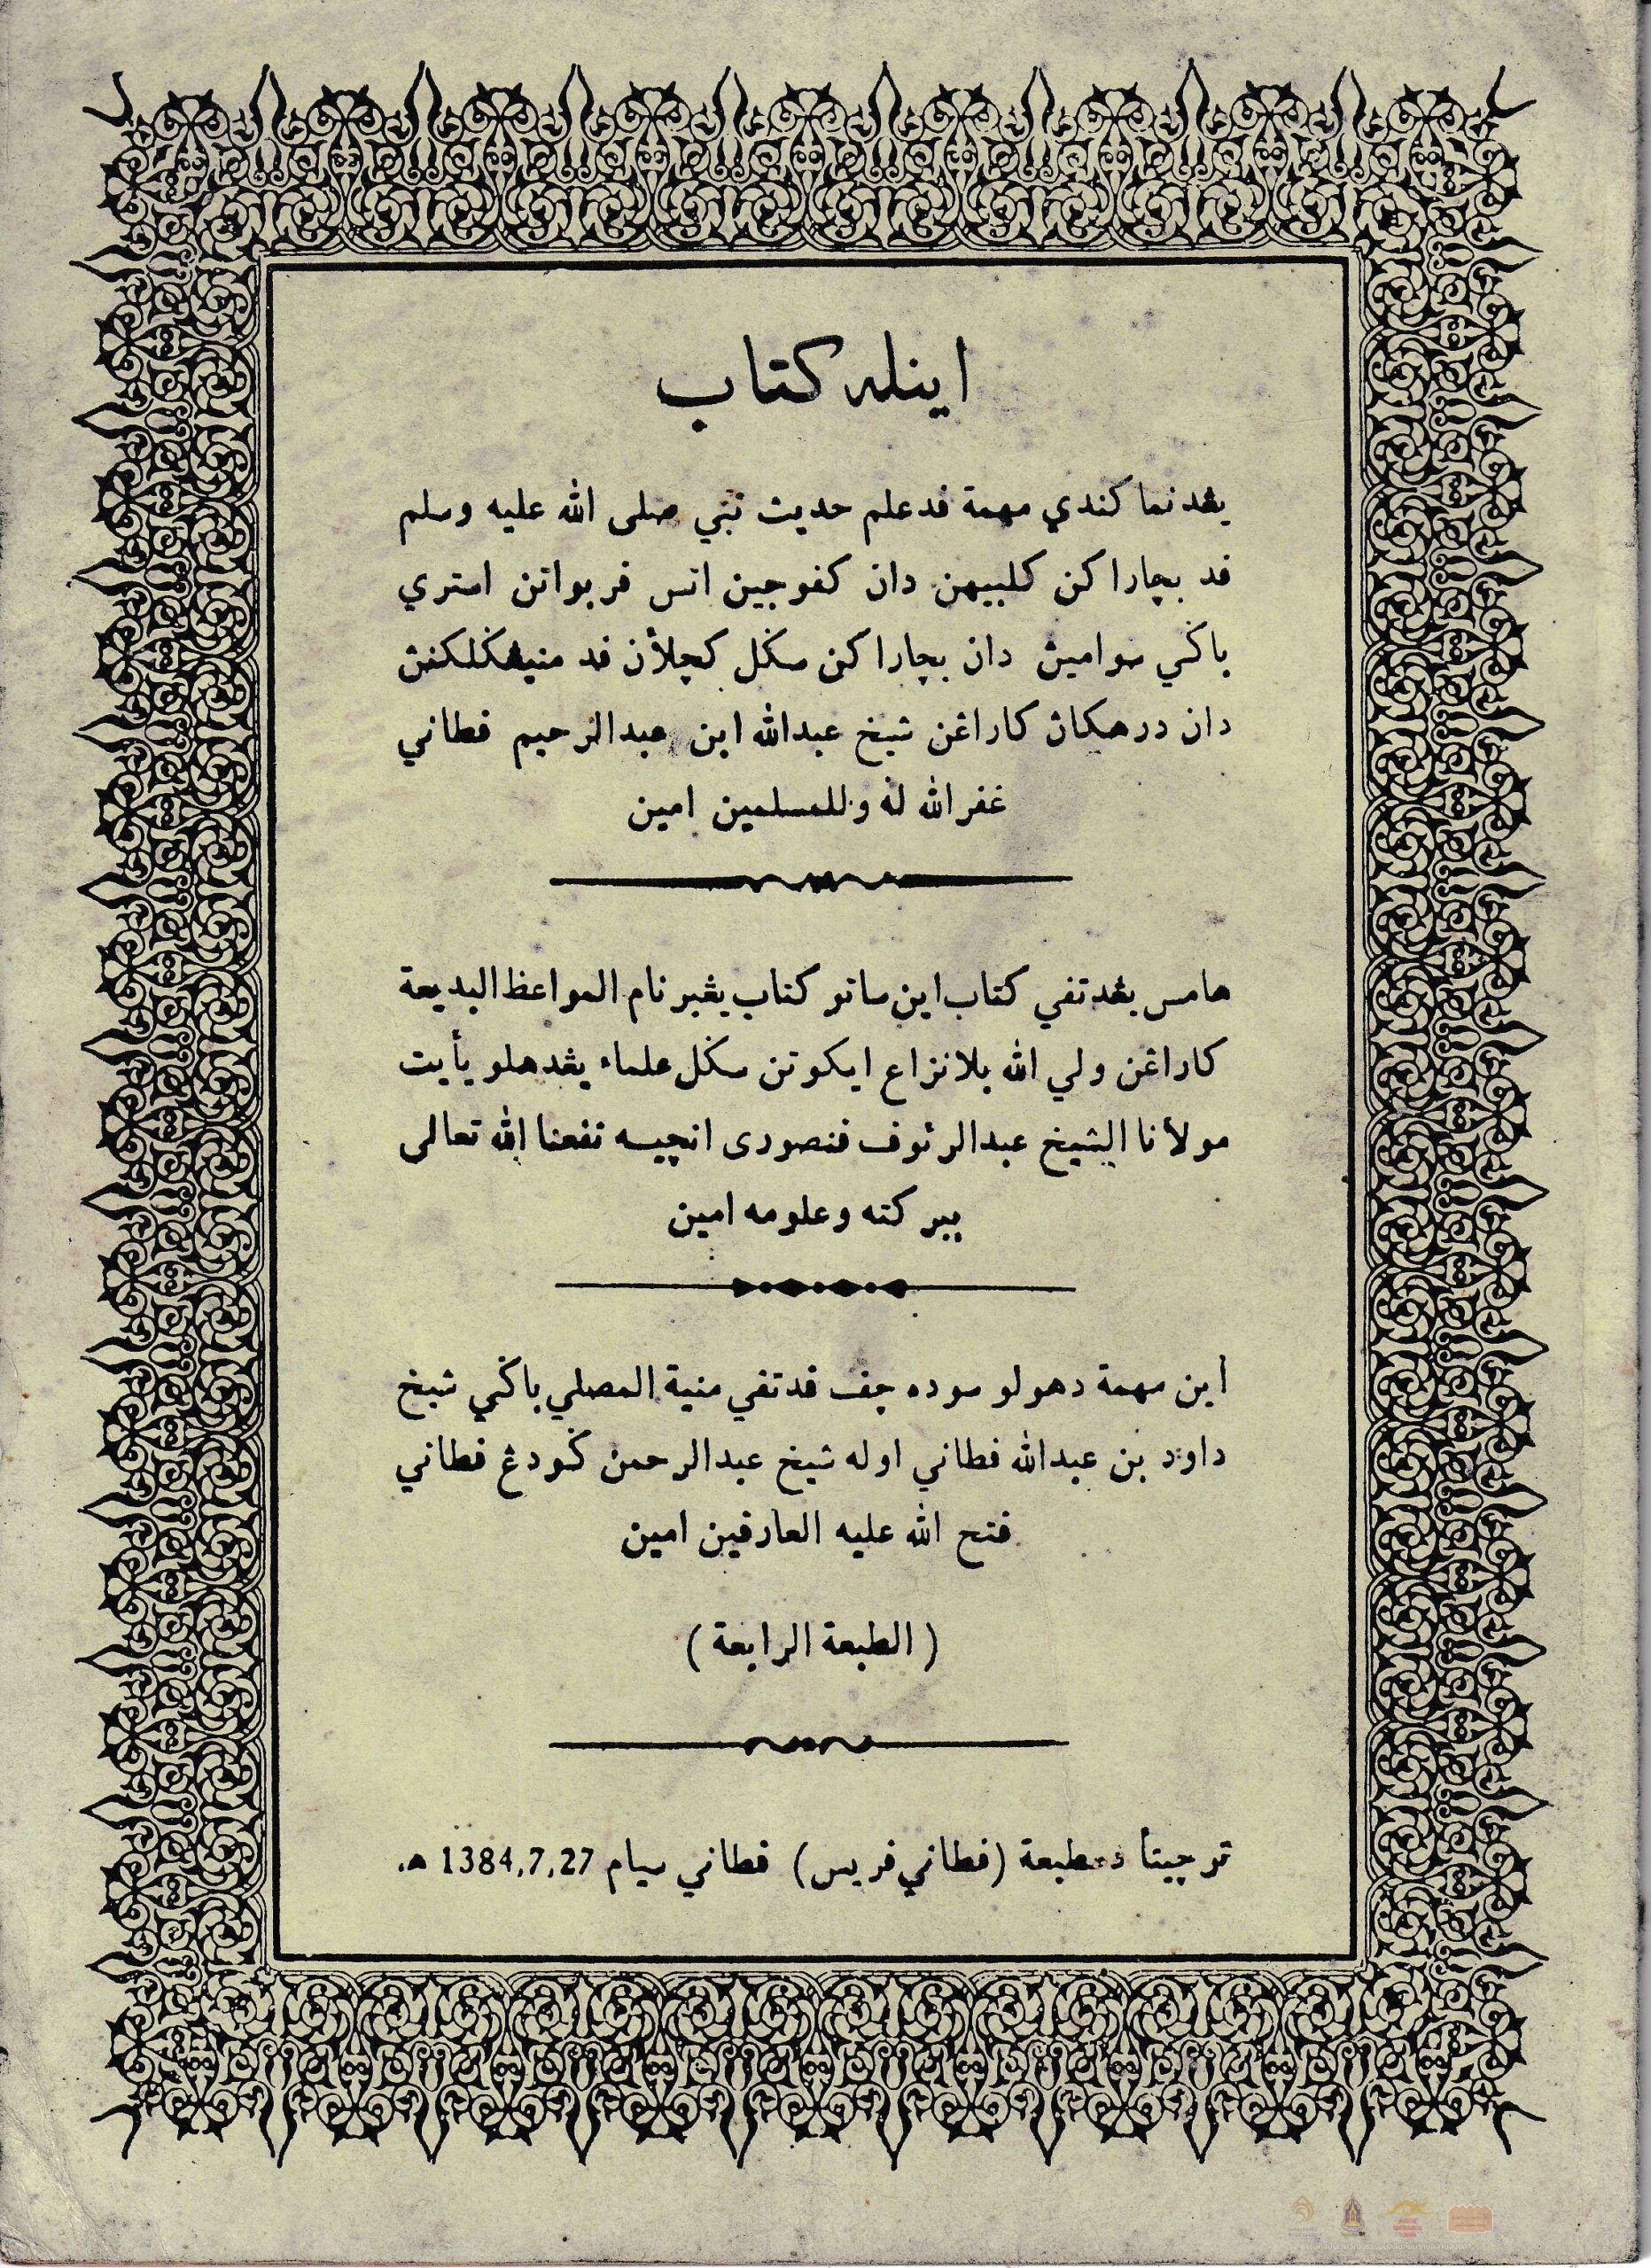 اينله كتاب
يڠدنما كندي مهمة فدعلم حديث نبي صلى الله عليه وسلم
فد بچاراكن كلبيهن دان كفوجين اتس فربواتن استري
باݢي سواميڽ دان بچاراكن سݢل كچلأن فد منيڠݢلكنڽ
دان درهكاڽ كاراڠن شيخ عبدالله ابن عبدالرحيم فطاني
غفرالله له وللمسلمين امين
هامس يڠدتفي كتاب اين ساتو كتاب يڠبرنام المواعظ البديعة
كاراڠن ولي الله بلانزاع ايكوتن سݢل علماء يڠدهلو يأيت
مولأنا الشيخ عبدالرئوف فنصورى انچيه نفعنا الله تعالى
ببركته وعلومه امين
أين مهمة دهولو سوده چف فدتفي منية المصلي باݢي شيخ
داود بن عبدالله فطاني اوله شيخ عبدالرحمن ݢودڠ فطاني
فتح الله عليه العارفين امين
(الطبعة الرابعة)
ترچيتأ دمطبعة (فطاني فريس) فطاني سيام 1384,7,27 ه.